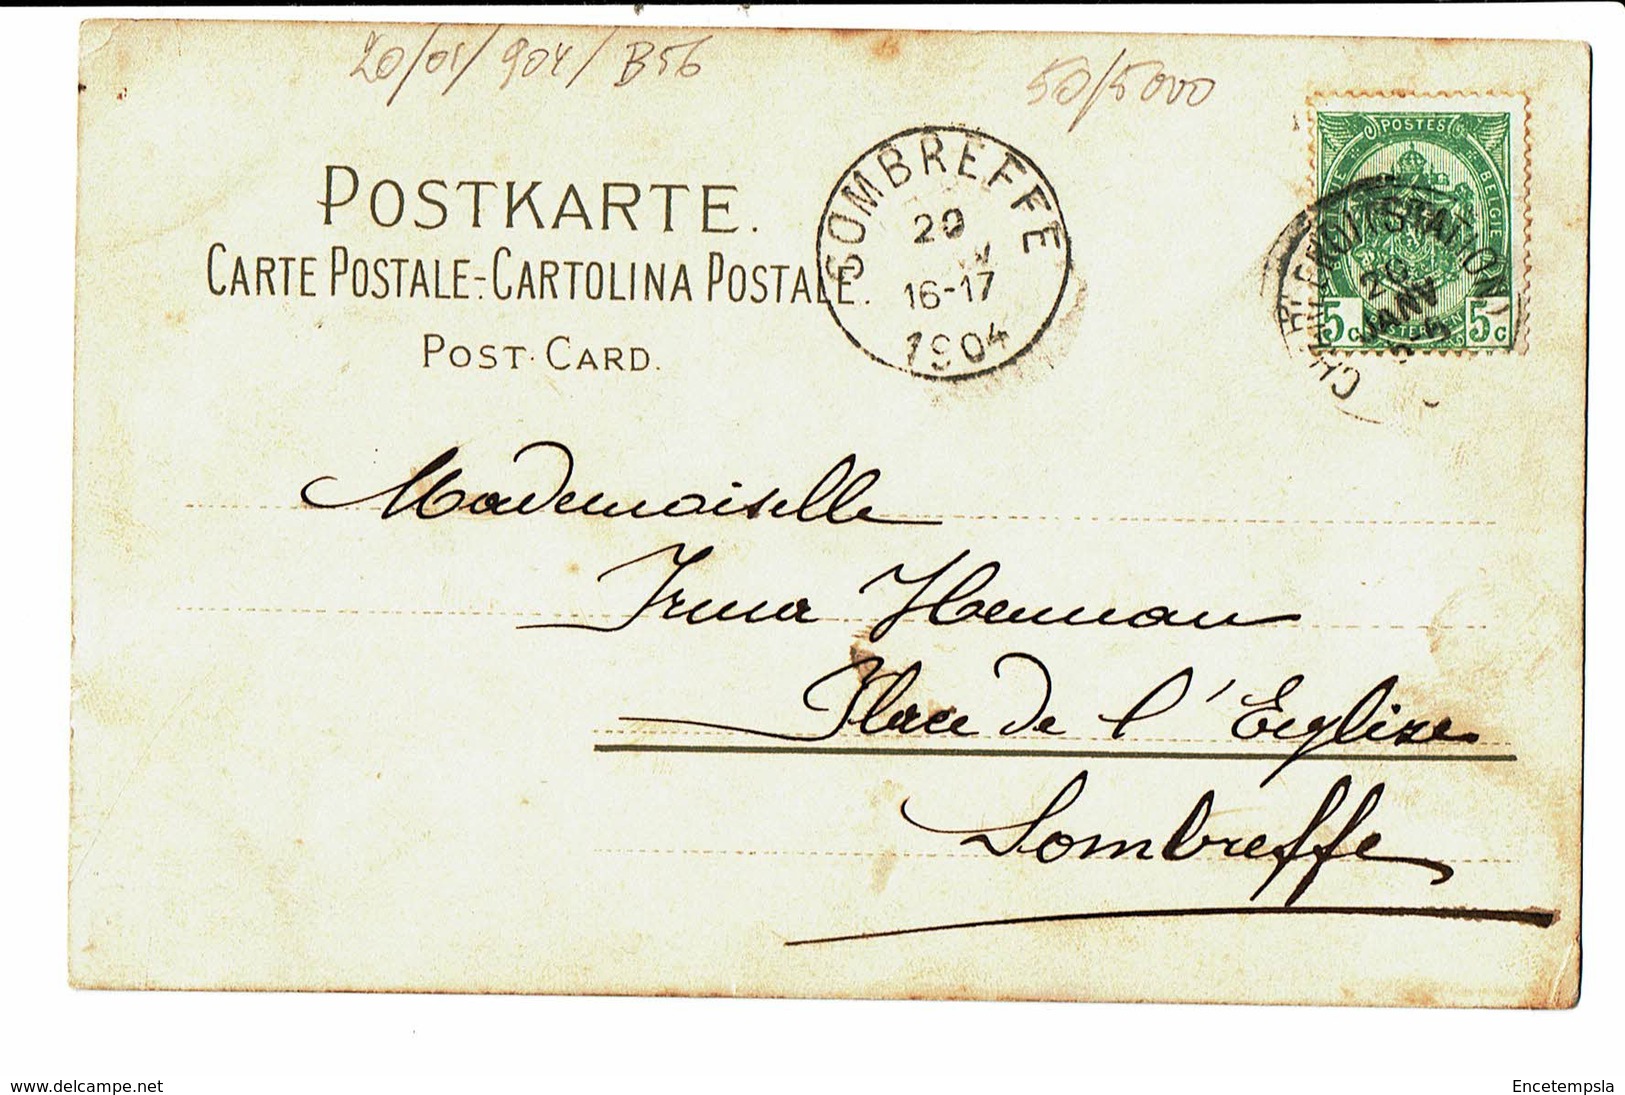 20/01/904/B56
50/5000
POSTKARTE.
CARTE POSTALE-CARTOLINA POSTALE.
POST CARD.
SOMBREFFE
20
16-17
1904
POSTES
BELGIE
5c 5c
CHARLEROI (STATION)
20
JANV
Mademoiselle
Irma Herman
Place de l'Eglise
Sombreffe
www.delcampe.net
Encetempsla